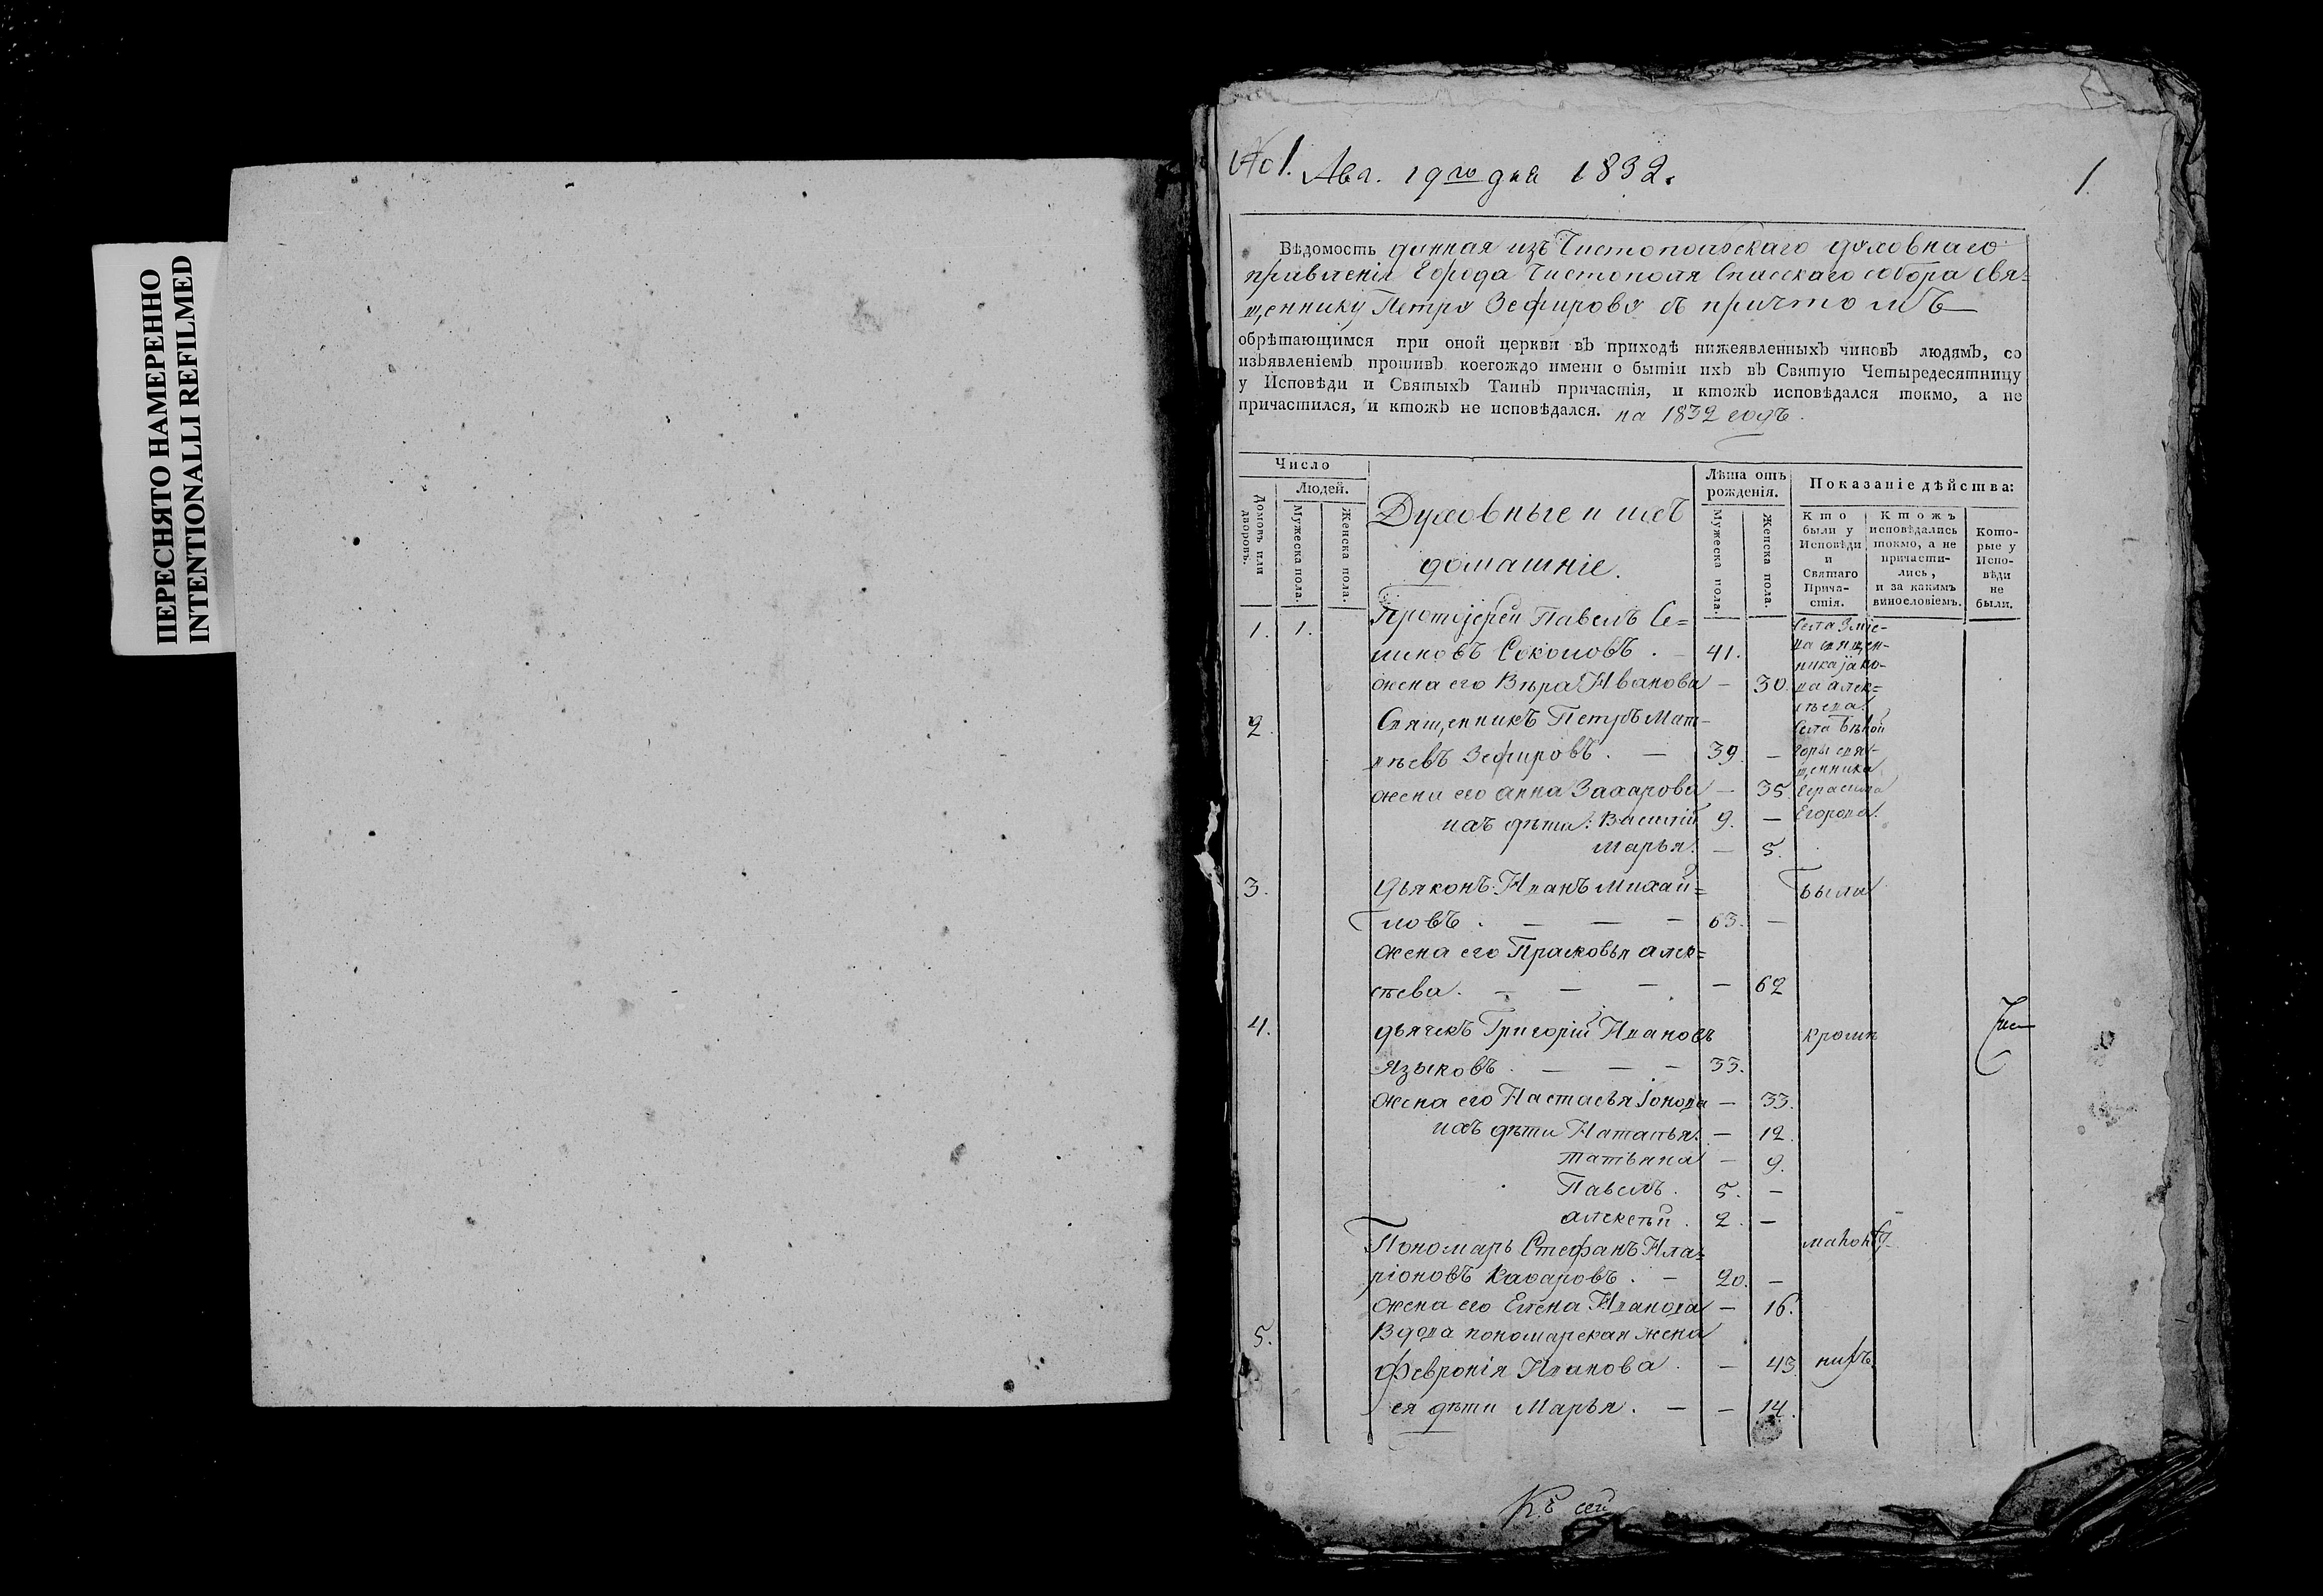 ПЕРЕСНЯТО НАМЕРЕННО
INTENTIONALLI REFILMED
No 1. Авг. 19го дня 1832.
1.
Вѣдомость данная изъ Чистопольскаго духовнаго
правленія Города Чистополя Спасскаго собора свя-
щеннику Петру Зефирову съ причтомъ
обрѣтающимся при оной церкви въ приходѣ нижеявленныхъ чиновъ людямъ, со
изъявленіемъ противъ коегождо имени о бытіи ихъ въ Святую Четыредесятницу
у Исповѣди и Святыхъ Таинъ причастія, и ктожъ исповѣдался токмо, а не
причастился, и ктожъ не исповѣдался. на 1832 годъ.
Число
Домовъ или дворовъ.
Людей.
Мужеска пола.
Женска пола.
Духовные и ихъ
домашніе.
Лѣта отъ
рожденія.
Мужеска пола.
Женска пола.
Показаніе дѣйства:
Кто
были у
Исповѣди
и
Святаго
Прича-
стія.
Ктожъ
исповѣдались
токмо, а не
причасти-
лись,
и за какимъ
винословіемъ.
Кото-
рые у
Испо-
вѣди
не
были.
1. 1. Протоіерей Павелъ Се-
миновъ Соколовъ . — 41.
жена его Вѣра Иванова — 30.
Села
на священ-
ника Іако-
ва Алек-
сѣева.
2. Священникъ Петръ Мат-
вѣевъ Зефировъ . — 39. —
жена его Анна Захарова — 35.
ихъ дѣти: Василій 9. —
Марья. — 5.
Села Бѣлой
Горы свя-
щенника
Герасима
Егорова.
3. Дьяконъ Иванъ Михай-
ловъ . — — — 63. —
Были
жена его Прасковья Алек-
сѣева. — — — — 62
4. дьячекъ Григорій Ивановъ кромѣ
Языковъ . — — — 33.
жена его Настасья Іонова — 33.
ихъ дѣти Наталья. — 12.
Татьяна — 9.
Павелъ. 5. —
Алексѣй . 2. —
Пономарь Стефанъ Ила-
ріоновъ Казаровъ . — 20. —
жена его Елена Иванова — 16.
5. Вдова пономарская жена
Февронія Иванова . — 43.
ея дѣти Марья . — — 14.
Къ сей